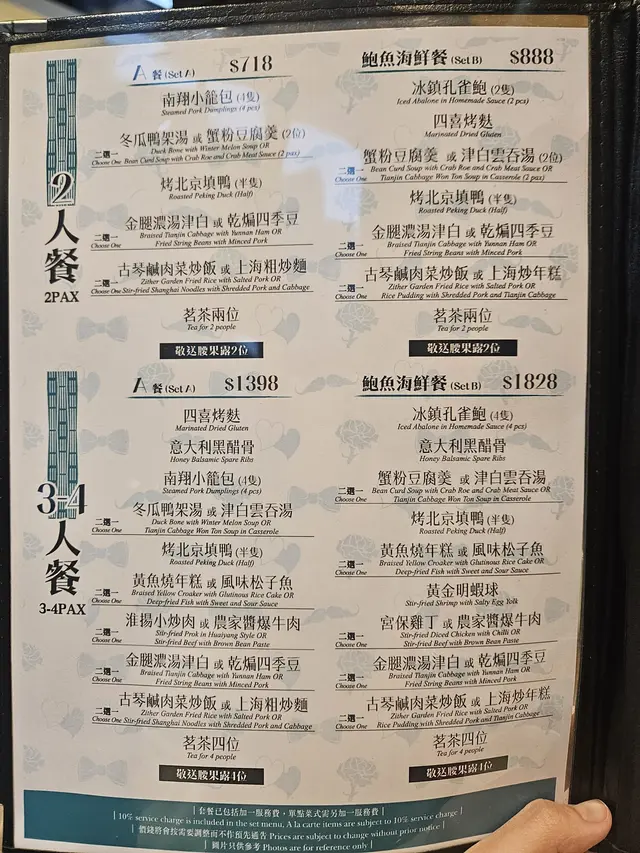 2
人
餐
2PAX
A 餐 (Set A) $718
南翔小籠包 (4隻)
Steamed Pork Dumplings (4 pcs)
冬瓜鴨架湯 或 蟹粉豆腐羹 (2位)
二選一 Duck Bone with Winter Melon Soup OR
Choose One Bean Curd Soup with Crab Roe and Crab Meat Sauce (2 pax)
烤北京填鴨 (半隻)
Roasted Peking Duck (Half)
金腿濃湯津白 或 乾煸四季豆
二選一 Braised Tianjin Cabbage with Yunnan Ham OR
Choose One Fried String Beans with Minced Pork
古琴鹹肉菜炒飯 或 上海粗炒麵
二選一 Zither Garden Fried Rice with Salted Pork OR
Choose One Stir-fried Shanghai Noodles with Shredded Pork and Cabbage
茗茶兩位
Tea for 2 people
敬送腰果露2位
鮑魚海鮮餐 (Set B) $888
冰鎮孔雀鮑 (2隻)
Iced Abalone in Homemade Sauce (2 pcs)
四喜烤麩
Marinated Dried Gluten
蟹粉豆腐羹 或 津白雲吞湯 (2位)
二選一 Bean Curd Soup with Crab Roe and Crab Meat Sauce OR
Choose One Tianjin Cabbage Won Ton Soup in Casserole (2 pax)
烤北京填鴨 (半隻)
Roasted Peking Duck (Half)
金腿濃湯津白 或 乾煸四季豆
二選一 Braised Tianjin Cabbage with Yunnan Ham OR
Choose One Fried String Beans with Minced Pork
古琴鹹肉菜炒飯 或 上海炒年糕
二選一 Zither Garden Fried Rice with Salted Pork OR
Choose One Rice Pudding with Shredded Pork and Tianjin Cabbage
茗茶兩位
Tea for 2 people
敬送腰果露2位
3-4
人
餐
3-4PAX
A 餐 (Set A) $1398
四喜烤麩
Marinated Dried Gluten
意大利黑醋骨
Honey Balsamic Spare Ribs
南翔小籠包 (4隻)
Steamed Pork Dumplings (4 pcs)
冬瓜鴨架湯 或 津白雲吞湯
二選一 Duck Bone with Winter Melon Soup OR
Choose One Tianjin Cabbage Won Ton Soup in Casserole
烤北京填鴨 (半隻)
Roasted Peking Duck (Half)
黃魚燒年糕 或 風味松子魚
二選一 Braised Yellow Croaker with Glutinous Rice Cake OR
Choose One Deep-fried Fish with Sweet and Sour Sauce
淮揚小炒肉 或 農家醬爆牛肉
二選一 Stir-fried Prok in Huaiyang Style OR
Choose One Stir-fried Beef with Brown Bean Paste
金腿濃湯津白 或 乾煸四季豆
二選一 Braised Tianjin Cabbage with Yunnan Ham OR
Choose One Fried String Beans with Minced Pork
古琴鹹肉菜炒飯 或 上海粗炒麵
二選一 Zither Garden Fried Rice with Salted Pork OR
Choose One Stir-fried Shanghai Noodles with Shredded Pork and Cabbage
茗茶四位
Tea for 4 people
敬送腰果露4位
鮑魚海鮮餐 (Set B) $1828
冰鎮孔雀鮑 (4隻)
Iced Abalone in Homemade Sauce (4 pcs)
意大利黑醋骨
Honey Balsamic Spare Ribs
蟹粉豆腐羹 或 津白雲吞湯
二選一 Bean Curd Soup with Crab Roe and Crab Meat Sauce OR
Choose One Tianjin Cabbage Won Ton Soup in Casserole
烤北京填鴨 (半隻)
Roasted Peking Duck (Half)
黃魚燒年糕 或 風味松子魚
二選一 Braised Yellow Croaker with Glutinous Rice Cake OR
Choose One Deep-fried Fish with Sweet and Sour Sauce
黃金明蝦球
Stir-fried Shrimp with Salty Egg Yolk
宮保雞丁 或 農家醬爆牛肉
二選一 Stir-fried Diced Chicken with Chilli OR
Choose One Stir-fried Beef with Brown Bean Paste
金腿濃湯津白 或 乾煸四季豆
二選一 Braised Tianjin Cabbage with Yunnan Ham OR
Choose One Fried String Beans with Minced Pork
古琴鹹肉菜炒飯 或 上海炒年糕
二選一 Zither Garden Fried Rice with Salted Pork OR
Choose One Rice Pudding with Shredded Pork and Tianjin Cabbage
茗茶四位
Tea for 4 people
敬送腰果露4位
| 套餐已包括加一服務費，單點菜式需另加一服務費 |
| 10% service charge is included in the set menu, A la carte items are subject to 10% service charge |
| 價錢將會按需要調整而不作預先通告 Prices are subject to change without prior notice |
| 圖片只供參考 Photos are for reference only |